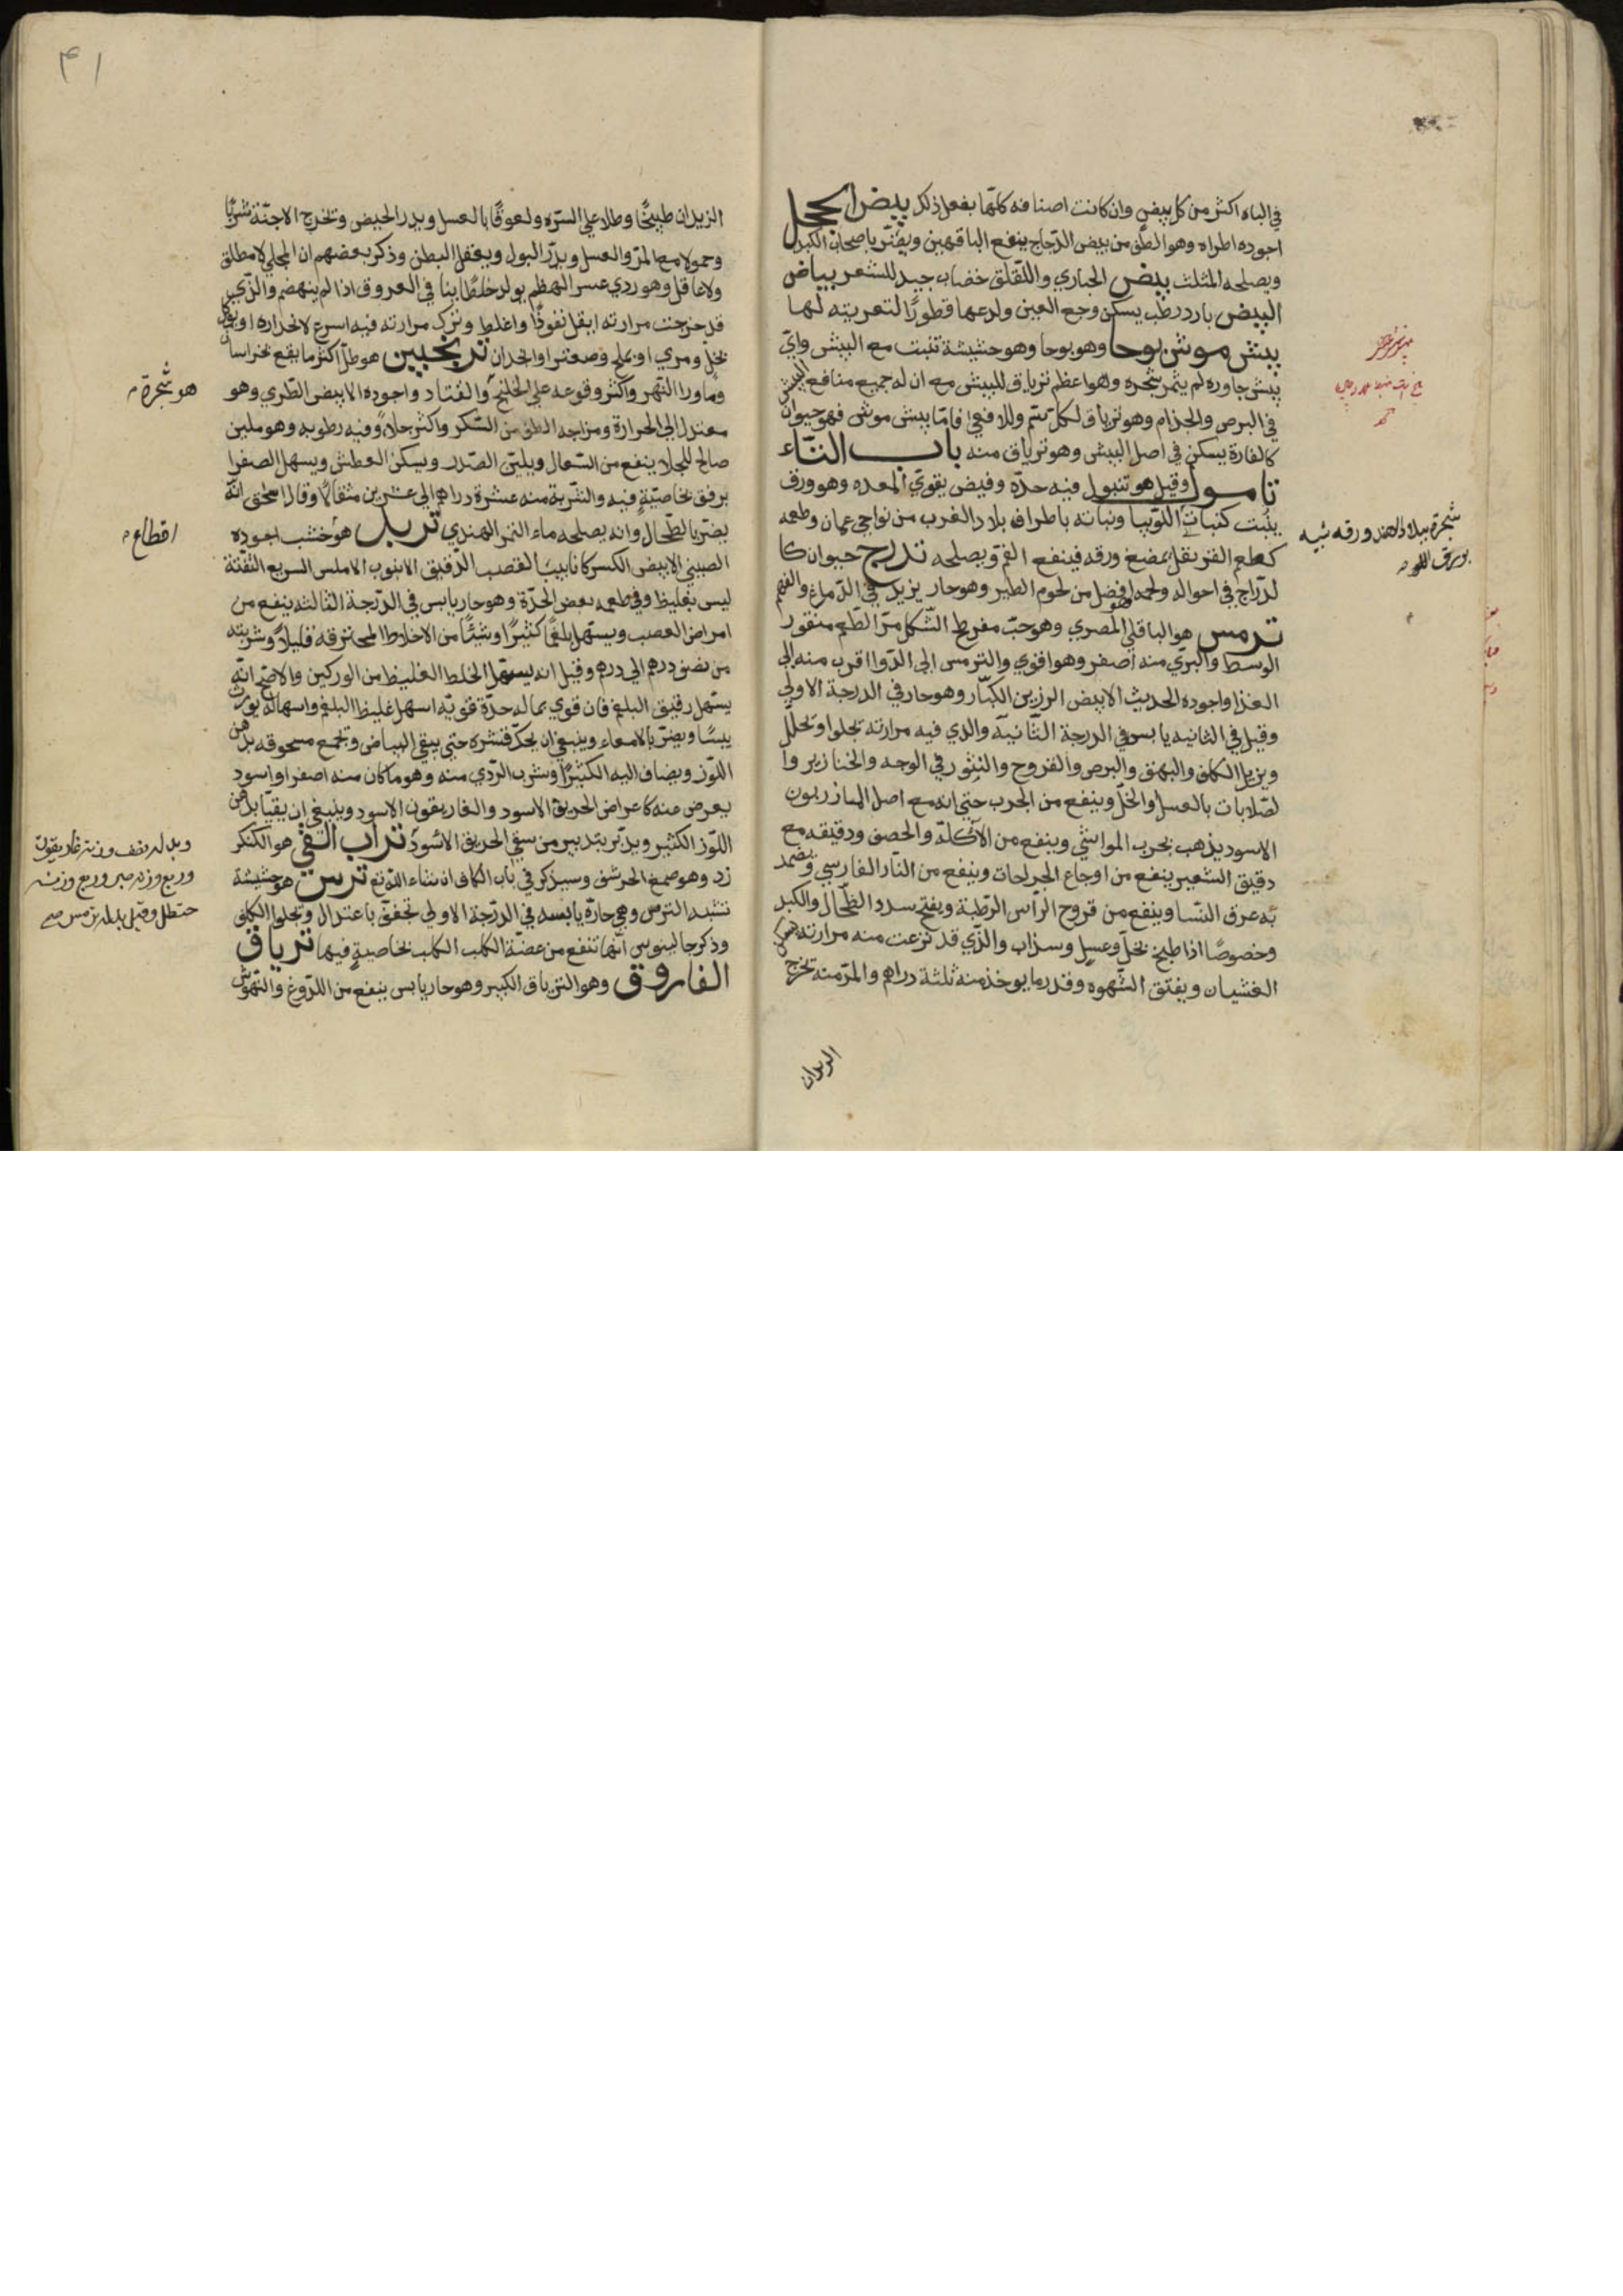 في الباه اكثر من كل بيض وان كانت اصنافه كلها بفعل ذلك بيض الحجل
اجوده اطراه وهو الطف من بيض الدجاج ينفع الناقهين ويضر باصحاب الكبد
ويصلحه المثلث بيض الحباري واللقلق خضاب جيد للشعر بياض
البيض بارد رطب يسكن وجع العين ولدعها قطورًا لتعريته لها
بيش موش بوحا وهو بوحا وهو حشيشة تنبت مع البيش واي
بيش جاوره لم يثمر شجره وهو اعظم ترياق للبيش مع ان له جميع منافع البيش
في البرص والجذام وهو ترياق لكل سم وللافعي فاما بيش موش فهو حيوان
كالفارة يسكن في اصل البيش وهو ترياق منه باب التاء
تامول وقيل هو تنبول فيه حدة وقبض يقوي المعده وهو ورق
ينبت كنبات اللوبيا ونباته باطراف بلاد الغرب من نواحي عمان وطعمه
كطعم القرنفل يمضغ ورقه فينفع الفم ويصلحه تدرج حيوان كا
لدراج في احواله ولحمه افضل من لحوم الطير وهو حار يزيد في الدماغ والفهم
ترمس هو الباقلي المصري وهو حب مفرطح الشكل مر الطعم منقور
الوسط والبري منه اصفر وهو اقوي والترمس الي الدوا اقرب منه الي
الغذا واجوده الحديث الابيض الرزين الكبار وهو حار في الدرجة الاولي
وقيل في الثانيه يابس في الدرجة الثانية والذي فيه مرارته تجلوا وتحلل
ويزيل الكلف والبهق والبرص والقروح والبثور في الوجه والخنازير وا
لصلابات بالعسل والخل وينفع من الجرب حتي انه مع اصل المازريون
الاسود يذهب بجرب المواشي وينفع من الآكلة والحصف ودقيقه مع
دقيق الشعير ينفع من اوجاع الجراحات وينفع من النار الفارسي وتضمد
به عرق النسا وينفع من قروح الراس الرطبة ويفتح سدد الطحال والكبد
وخصوصًا اذا طبخ بخل وعسل وسذاب والذي قد نزعت منه مرارته يسكن
الغشيان ويفتق الشهوه وقدر ما يوخذ منه ثلثة دراهم والمر منه تخرج
شجرة ببلاد الهند ورقه شبيه
بورق اللو
الديدان
٤١
الزيدان طبيخًا وطلا علي السره ولعوقًا بالعسل ويدر الحيض وتخرج الاجنة شربًا
وحمولا مع المر والعسل ويدر البول ويعقل البطن وذكر بعضهم ان المحلي لا مطلق
ولا عاقل وهو ردي عسر الهضم يولد خلطًا نيا في العروق اذا لم ينهضم والذي
قد خرجت مرارته اثقل نفوذًا واغلظ وترك مرارته فيه اسرع لانحداره او يوكل
بخل ومري او بملح وصعتر او انجدان ترنجبين هو طل اكثر ما يقع بخراسان
وماورا النهر واكثر وقوعه علي الخلنج والقتاد واجوده الابيض الطري وهو
معتدل الي الحرارة ومزاجه الطف من السكر واكثر جلاءً وفيه رطوبه وهو ملين
صالح للجلا ينفع من السعال ويلين الصدر ويسكن العطش ويسهل الصفرا
برفق بخاصية فيه والشربة منه عشرة دراهم الي عشرين مثقالًا وقال اسحق انه
يضر بالطحال وانه يصلحه ماء التمر الهندي تربد هو خشب اجوده
الصيني الابيض الكسر كانابيب القصب الدقيق الانبوب الاملس السريع التفتة
ليس بغليظ وفي طعمه بعض الحدة وهو حار يابس في الدرجة الثالثه ينفع من
امراض العصب ويسهل بلغمًا كثيرًا وشيئًا من الاخلاط المحترقه قليلًا وشربته
من نصف درهم الي درهم وقيل انه يسهل الخلط الغليظ من الوركين والاصح انه
يسهل رقيق البلغم فان قوي بما له حدة قويه اسهل غليظ البلغم واسهاله يورث
يبسًا ويضر بالامعاء وينبغي ان يحك قشره حتي يبقي البياض ويجمع مسحوقه بدهن
اللوز ويضاف اليه الكثيرا وشرب الردي منه وهو ما كان منه اصفر او اسود
يعرض منه كاعراض الخربق الاسود والغاريقون الاسود وينبغي ان يقيا بدهن
اللوز الكثير ويدبر بتدبير من سقي الخربق الاسود تراب القي هو الكنكر
زد وهو صمغ الحرشف وسيذكر في باب الكاف ان شاء الله تع ترس هو حشيشة
تشبه الترس وهي حارة يابسه في الدرجة الاولي تجفف باعتدال وتجلوا الكلف
وذكر جالينوس انها تنفع من عضة الكلب الكلب بخاصية فيها ترياق
الفاروق وهو الترياق الكبير وهو حار يابس ينفع من اللدوغ والنهوش
هو شجرة
اقطاع
وبدله نصف وزنه غاريقون
وربع وزنه صبر وربع وزنه
حنظل وقيل بدله ترمس صح